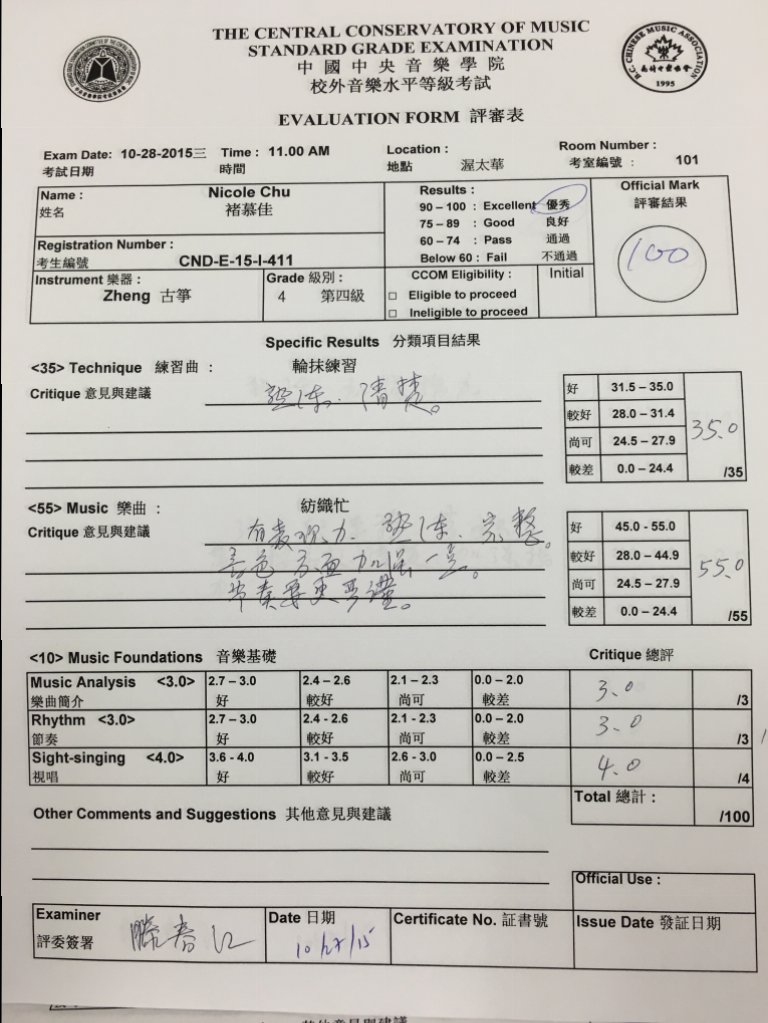 THE CENTRAL CONSERVATORY OF MUSIC
STANDARD GRADE EXAMINATION
中國中央音樂學院
校外音樂水平等級考試
EVALUATION FORM 評審表
B.C. CHINESE MUSIC ASSOCIATION
1995
Exam Date: 10-28-2015三 Time : 11.00 AM Location : Room Number :
考試日期 時間 地點 渥太華 考室編號 : 101
Name : Nicole Chu
姓名 褚慕佳
Registration Number :
考生編號 CND-E-15-I-411
Instrument 樂器 : Grade 級別 :
Zheng 古箏 4 第四級
Results :
90 – 100 : Excellent 優秀
75 – 89 : Good 良好
60 – 74 : Pass 通過
Below 60 : Fail 不通過
CCOM Eligibility : Initial
□ Eligible to proceed
□ Ineligible to proceed
Official Mark
評審結果
100
Specific Results 分類項目結果
<35> Technique 練習曲 : 輪抹練習
Critique 意見與建議 熟练、清楚。
好 31.5 – 35.0
較好 28.0 – 31.4
尚可 24.5 – 27.9
較差 0.0 – 24.4
35.0
/35
<55> Music 樂曲 : 紡織忙
Critique 意見與建議 有表现力、熟练、完整。
音色方面加强一点。
节奏要更严谨。
好 45.0 - 55.0
較好 28.0 – 44.9
尚可 24.5 – 27.9
較差 0.0 – 24.4
55.0
/55
<10> Music Foundations 音樂基礎 Critique 總評
Music Analysis <3.0> 2.7 – 3.0 2.4 – 2.6 2.1 – 2.3 0.0 – 2.0 3.0
樂曲簡介 好 較好 尚可 較差 /3
Rhythm <3.0> 2.7 – 3.0 2.4 - 2.6 2.1 - 2.3 0.0 – 2.0 3.0
節奏 好 較好 尚可 較差 /3
Sight-singing <4.0> 3.6 - 4.0 3.1 - 3.5 2.6 - 3.0 0.0 – 2.5 4.0
視唱 好 較好 尚可 較差 /4
Total 總計 :
/100
Other Comments and Suggestions 其他意見與建議
Official Use :
Examiner Date 日期 Certificate No. 証書號 Issue Date 發証日期
評委簽署